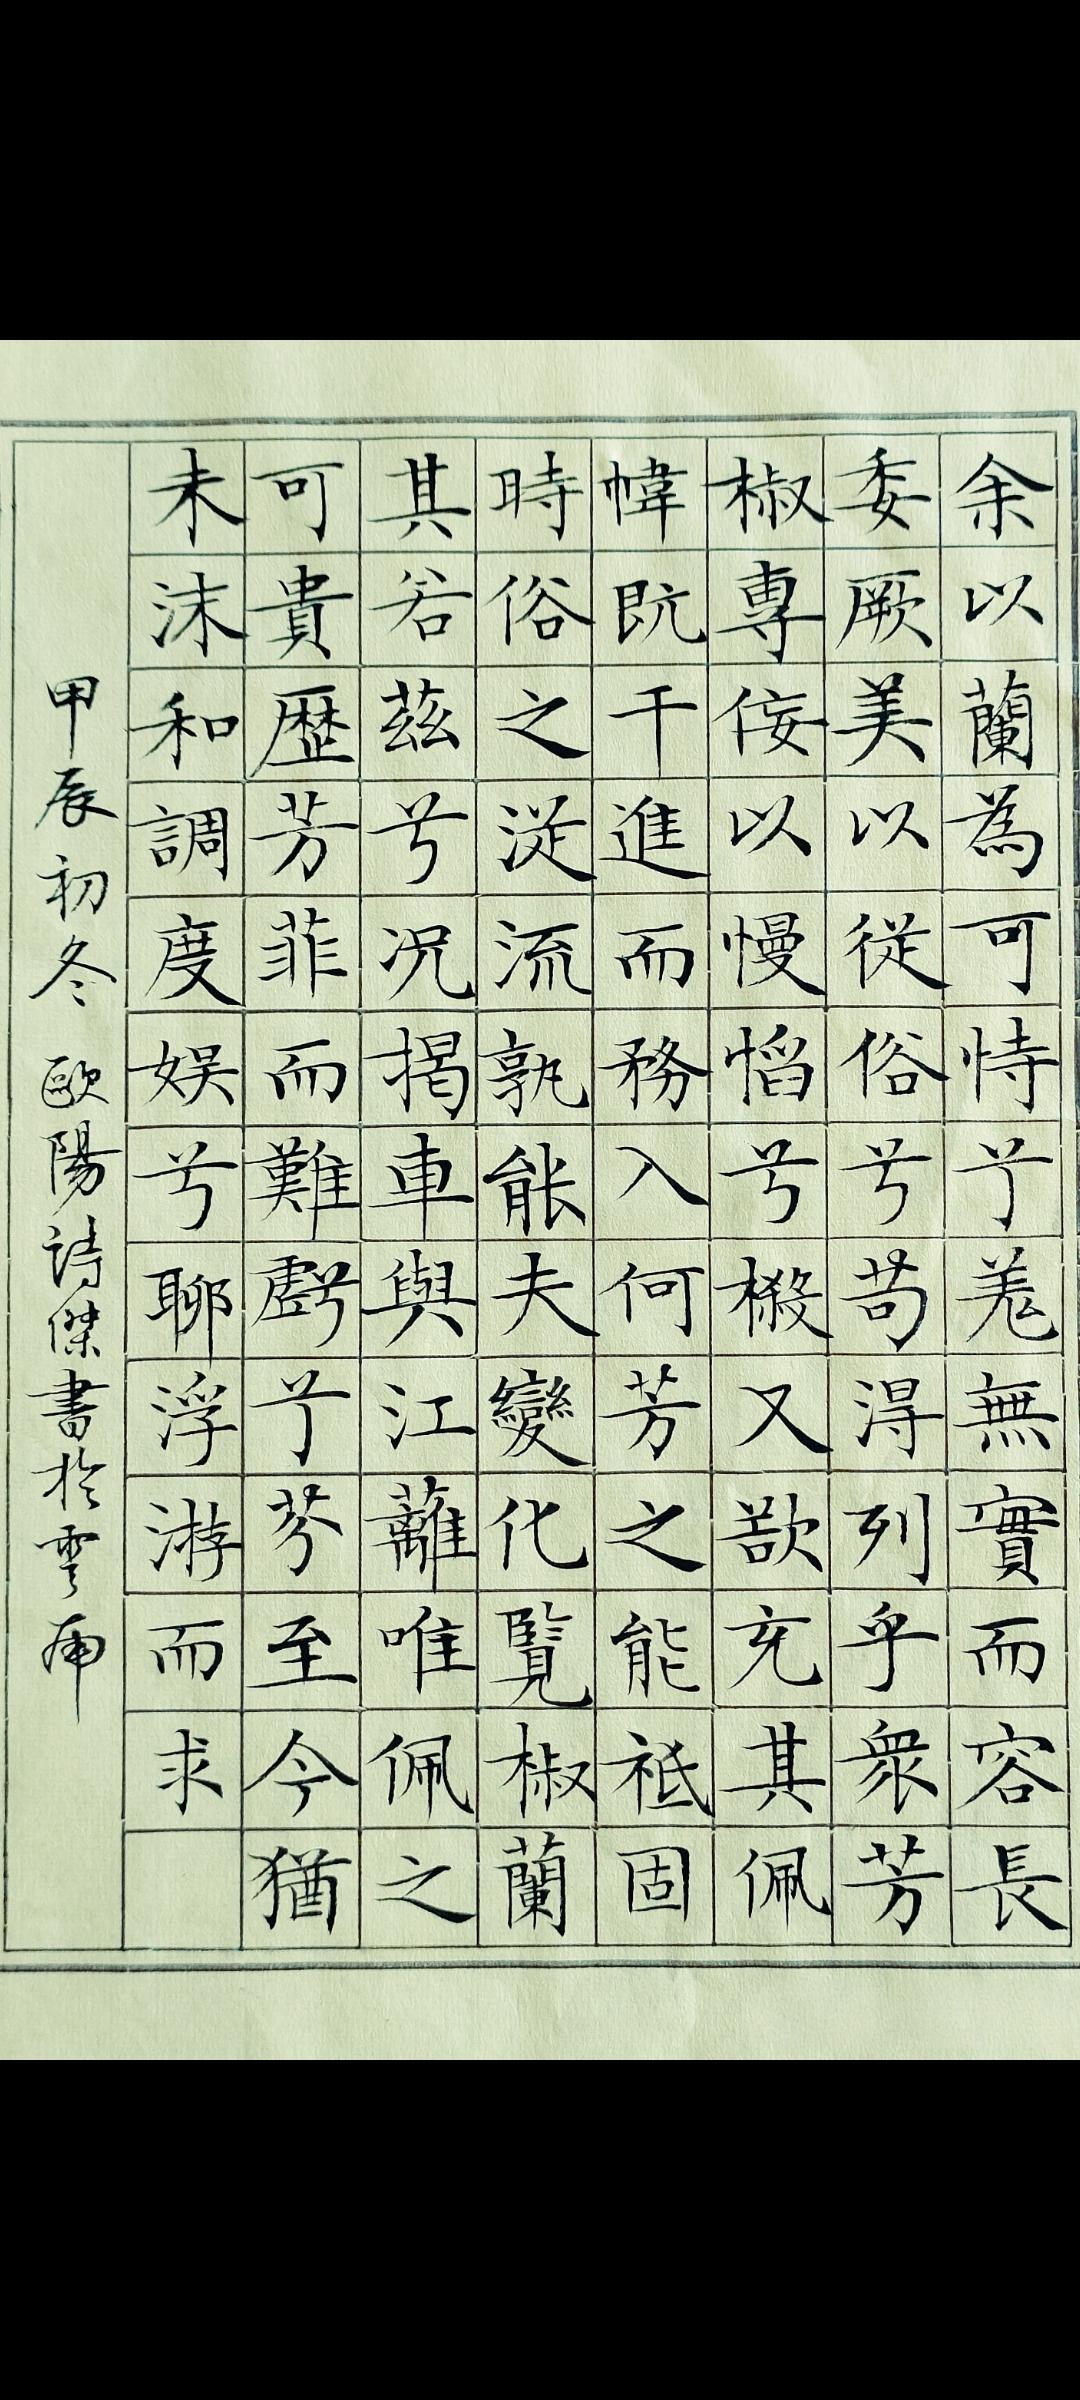 余以蘭為可恃兮羌無實而容長
委厥美以從俗兮苟得列乎衆芳
椒專佞以慢慆兮樧又欲充其佩
幃既干進而務入何芳之能祗固
時俗之從流孰能夫變化覽椒蘭
其若茲兮况揭車與江蘺唯佩之
可貴歷芳菲而難虧兮芬至今猶
未沫和調度娛兮聊浮游而求
甲辰初冬 歐陽詩傑書於雲